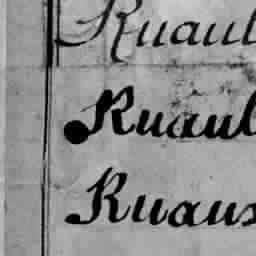 Ruaul
Ruaul
Ruaus